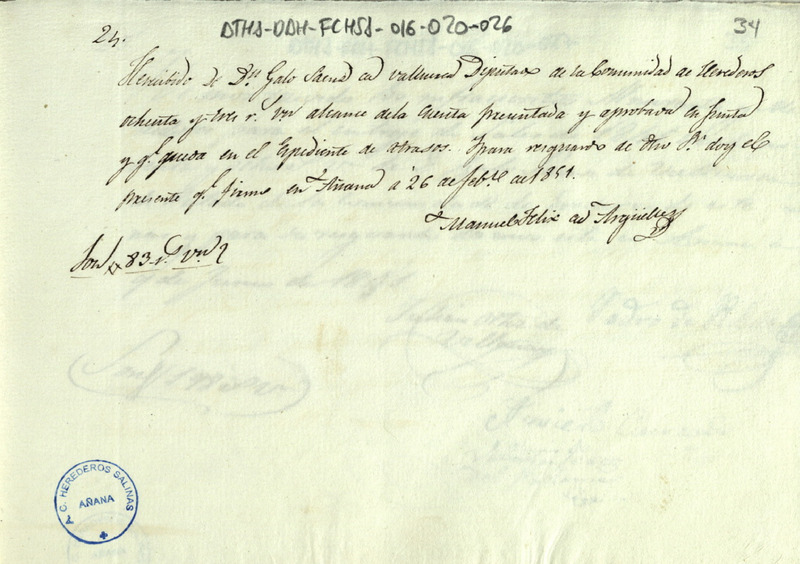 24.
DTHS-DDH-FCHSS-016-020-026
34
He recibido de Dn. Galo Saenz de Valluerca Diputado de la Comunidad de Herederos
ochenta y tres rs. vn alcance de la cuenta presentada y aprobada en Junta
y qe. queda en el Espediente de atrasos. Y para resguardo de dho Sr. doy el
presente qe. firmo en Añana á 26 de febro. de 1851.
Manuel Felix de Arguelles
Son 83 rs. vn
C. HEREDEROS SALINAS
AÑANA